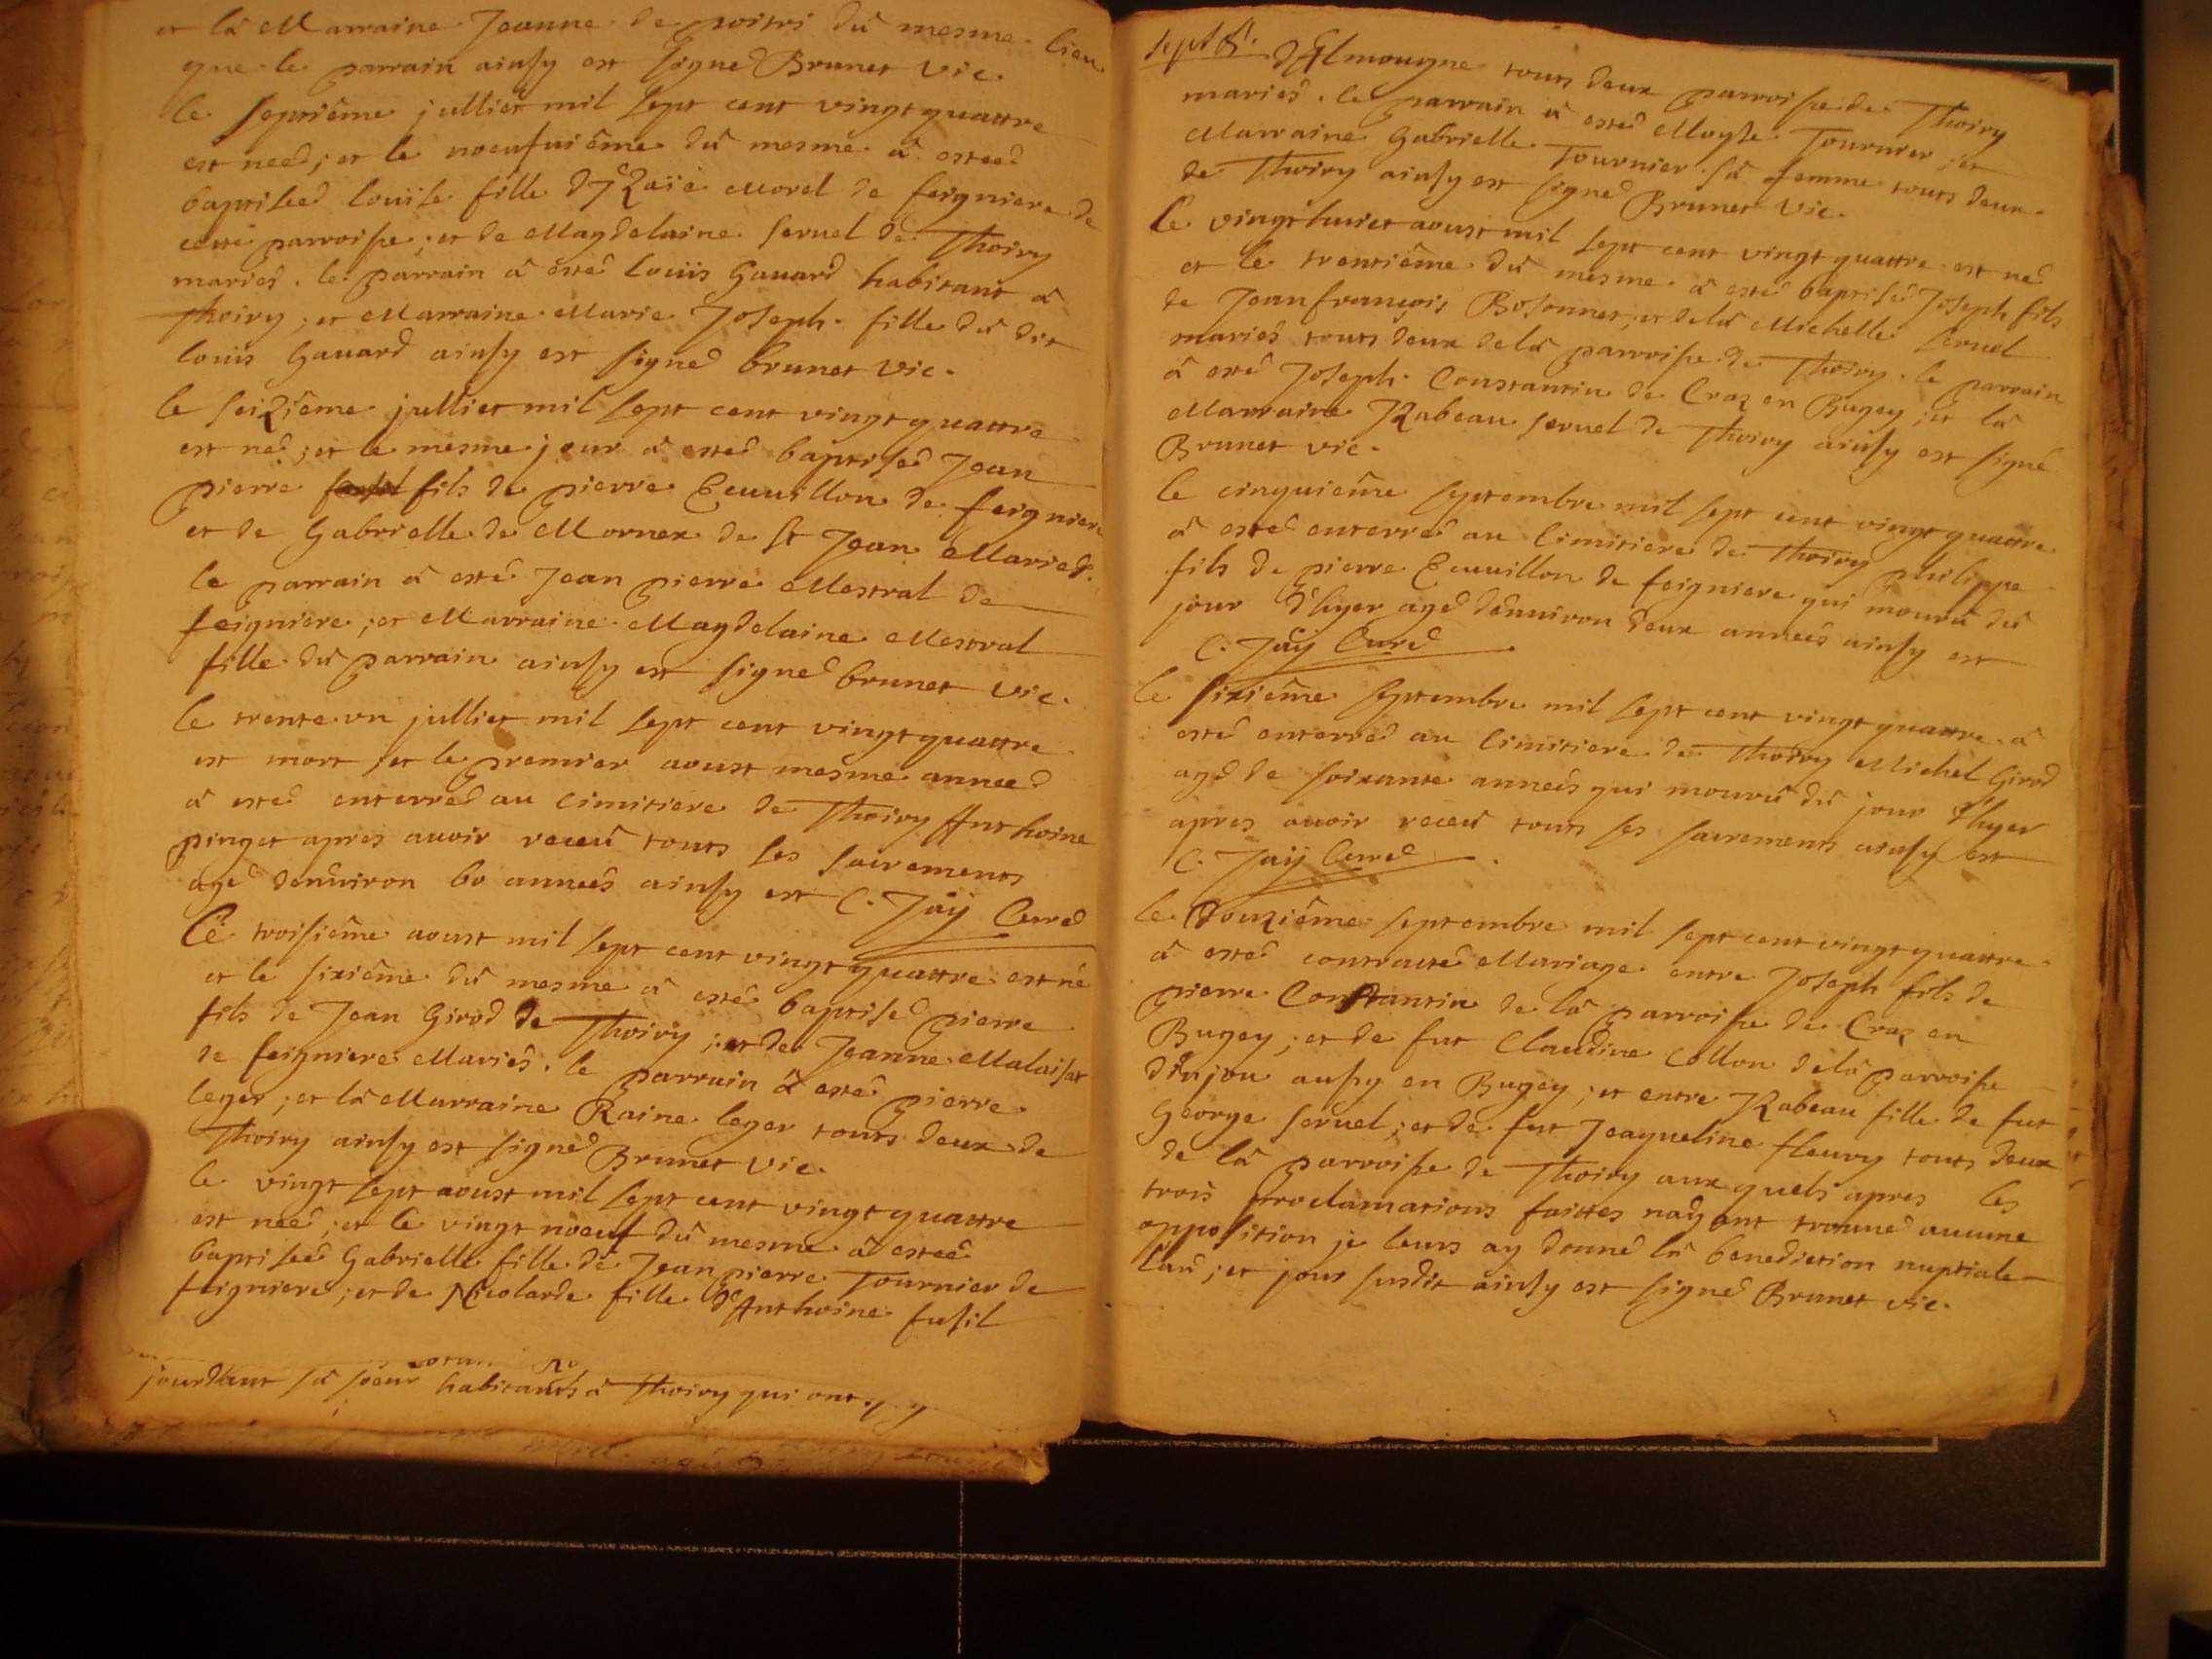 et la Marraine Jeanne de poitri du mesme lieu
que le parrain ainsy est signé Brunet vic.
le septième julliet mil sept cent vingt quattre
est neeé; et le noeufuième du mesme a esteé
baptiseé louïse fille d'Izaïe Morel de feigniere de
cette parroisse; et de Magdelaine seruel de Thoiry
mariés. le parrain a esté louis Gauard habitant a
Thoiry; et Marraine Marie Joseph fille du dit
louis Gauard ainsy est signé brunet vic.
le seizième julliet mil sept cent vingt quattre
est né; et le mesme jour a esté baptisé Jean
pierre fils de pierre Ecuuillon de feigniere
et de Gabrielle de Mornex de St Jean Mariés.
le parrain a esté Jean pierre Mestral de
feigniere; et Marraine Magdelaine Mestral
fille du parrain ainsy est signé brunet vic.
le trente vn julliet mil sept cent vingt quattre
est mort et le premier aoust mesme anneé
a esté enterré au cimitiere de Thoiry Anthoine
pinget apres auoir receu touts ses sacrements
agé denuiron 60 anneés ainsy est C. Jaÿ Curé
Le troisième aoust mil sept cent vingt quattre est né
et le sixième du mesme a esté baptisé pierre
fils de Jean Girod de Thoiry; et de Jeanne Malaisat
de feigniere Mariés. le parrain a esté pierre
leger; et la Marraine Raine leger touts deux de
Thoiry ainsy est signé Brunet vic.
le vingt sept aoust mil sept cent vingt quattre
est neé; et le vingt noeuf du mesme a esteé
baptiseé Gabrielle fille de Jean pierre Tournier de
feigniere; et de Nicolarde fille d'Anthoine fusil
jourdant sa soeur habitants a Thoiry qui ont
sept 8.
d'Almougne touts deux parroisse de Thoiry
mariés. le parrain a esté Moyse Tournier; et
Marraine Gabrielle Tournier sa femme touts deux
de Thoiry ainsy est signé Brunet vic.
Le vingt huict aoust mil sept cent vingt quattre est né
et le trentième du mesme a esté baptisé Joseph fils
de Jean françois Bosonnet; et de la Michelle seruel
mariés touts deux de la parroisse de Thoiry. le parrain
a esté Joseph Constantin de Craz en Bugey; et la
Marraine Izabeau seruel de Thoiry ainsy est signé
Brunet vic.
le cinquième septembre mil sept cent vingt quattre
a esté enterré au cimitiere de Thoiry philippe
fils de pierre Ecuuillon de feigniere qui mouru du
jour d'hyer agé denuiron deux anneés ainsy est
C. Jaÿ Curé
le sixième septembre mil sept cent vingt quattre a
esté enterré au cimitiere de Thoiry Michel Girod
agé de soixante anneés qui mouru du jour d'hyer
apres auoir receu touts ses sacrements ainsy est
C. Jaÿ Curé
le Douzième septembre mil sept cent vingt quattre
a esté contracté Mariage entre Joseph fils de
pierre Constantin de la parroisse de Craz en
Bugey; et de fut Claudine Collon de la parroisse
d'Injou aussy en Bugey; et entre Izabeau fille de fut
George seruel; et de fut Jeaqueline fleury touts deux
de la parroisse de Thoiry aux quels apres les
trois proclamations faittes nayant trouué aucune
opposition je leurs ay donné la benediction nuptiale
l'an; et jour susdit ainsy est signé Brunet vic.